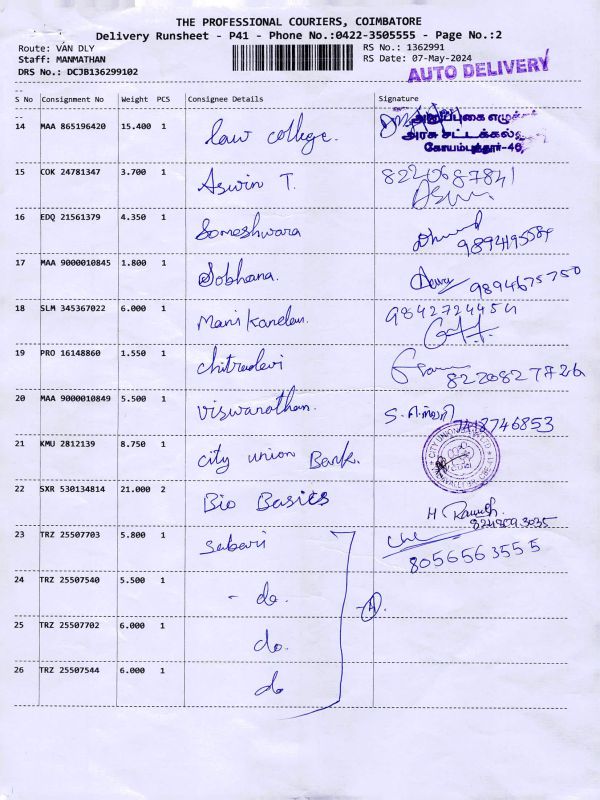 THE PROFESSIONAL COURIERS, COIMBATORE
Delivery Runsheet - P41 - Phone No.:0422-3505555 - Page No.:2
Route: VAN DLY
Staff: MANMATHAN
DRS No.: DCJB136299102
RS No.: 1362991
RS Date: 07-May-2024
AUTO DELIVERY
S No Consignment No Weight PCS Consignee Details Signature
14 MAA 865196420 15.400 1 Law college.
அரசு சட்டக்கல்
கோயம்புத்தூர்-46
15 COK 24781347 3.700 1 Aswin T. 8220687841
16 EDQ 21561379 4.350 1 Someshwara
17 MAA 9000010845 1.800 1 Sobhana. 9894675750
18 SLM 345367022 6.000 1 Manikandan. 9842724454
19 PRO 16148860 1.550 1 chitradevi 8220827726
20 MAA 9000010849 5.500 1 Viswanathan. 7418746853
21 KMU 2812139 8.750 1 city union Bank.
CITY UNION
22 SXR 530134814 21.000 2 Bio Basics
23 TRZ 25507703 5.800 1 Sabari 8056563555
24 TRZ 25507540 5.500 1 - do. -(4).
25 TRZ 25507702 6.000 1 do.
26 TRZ 25507544 6.000 1 do